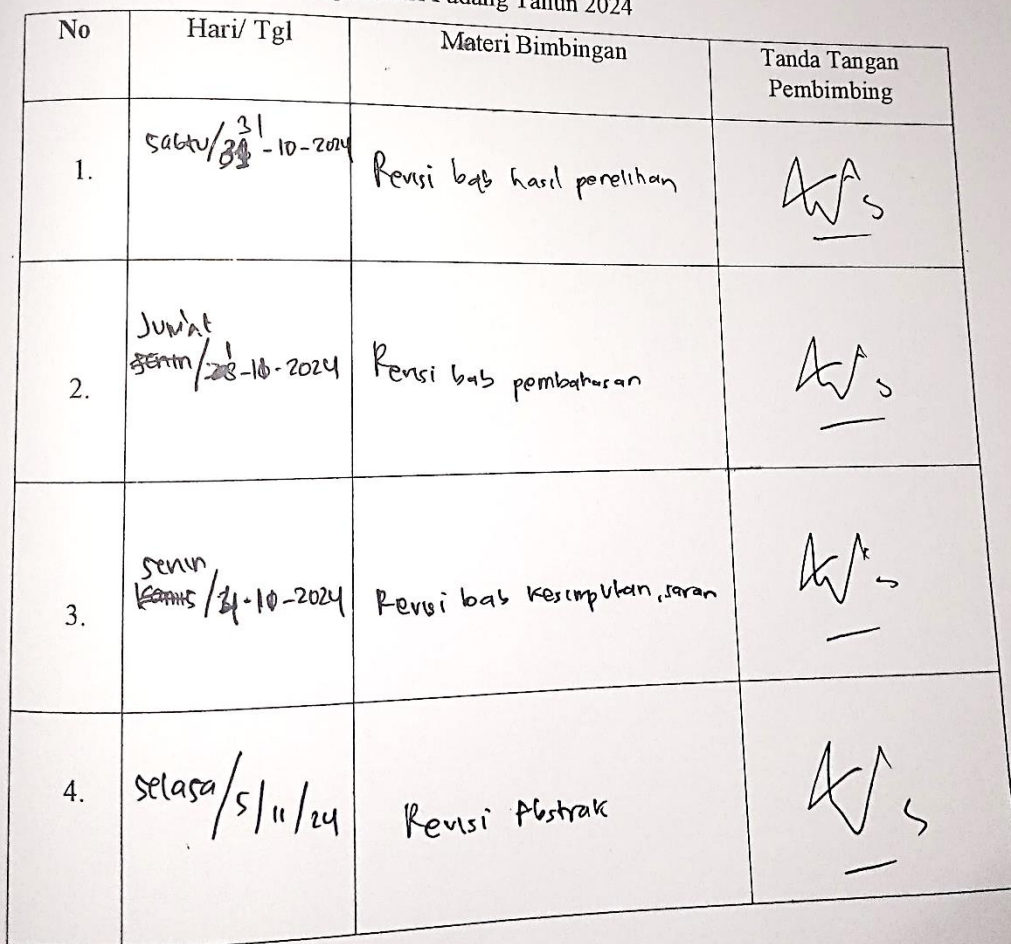 Padang Tahun 2024
No
Hari/ Tgl
Materi Bimbingan
Tanda Tangan
Pembimbing
1.
Sabtu/31-10-2024
Revisi bab hasil penelitian
2.
Jum'at
-2024
Revisi bab pembahasan
3.
Senin
-10-2024
Revisi bab kesimpulan, saran
4.
Selasa/5/11/24
Revisi Abstrak